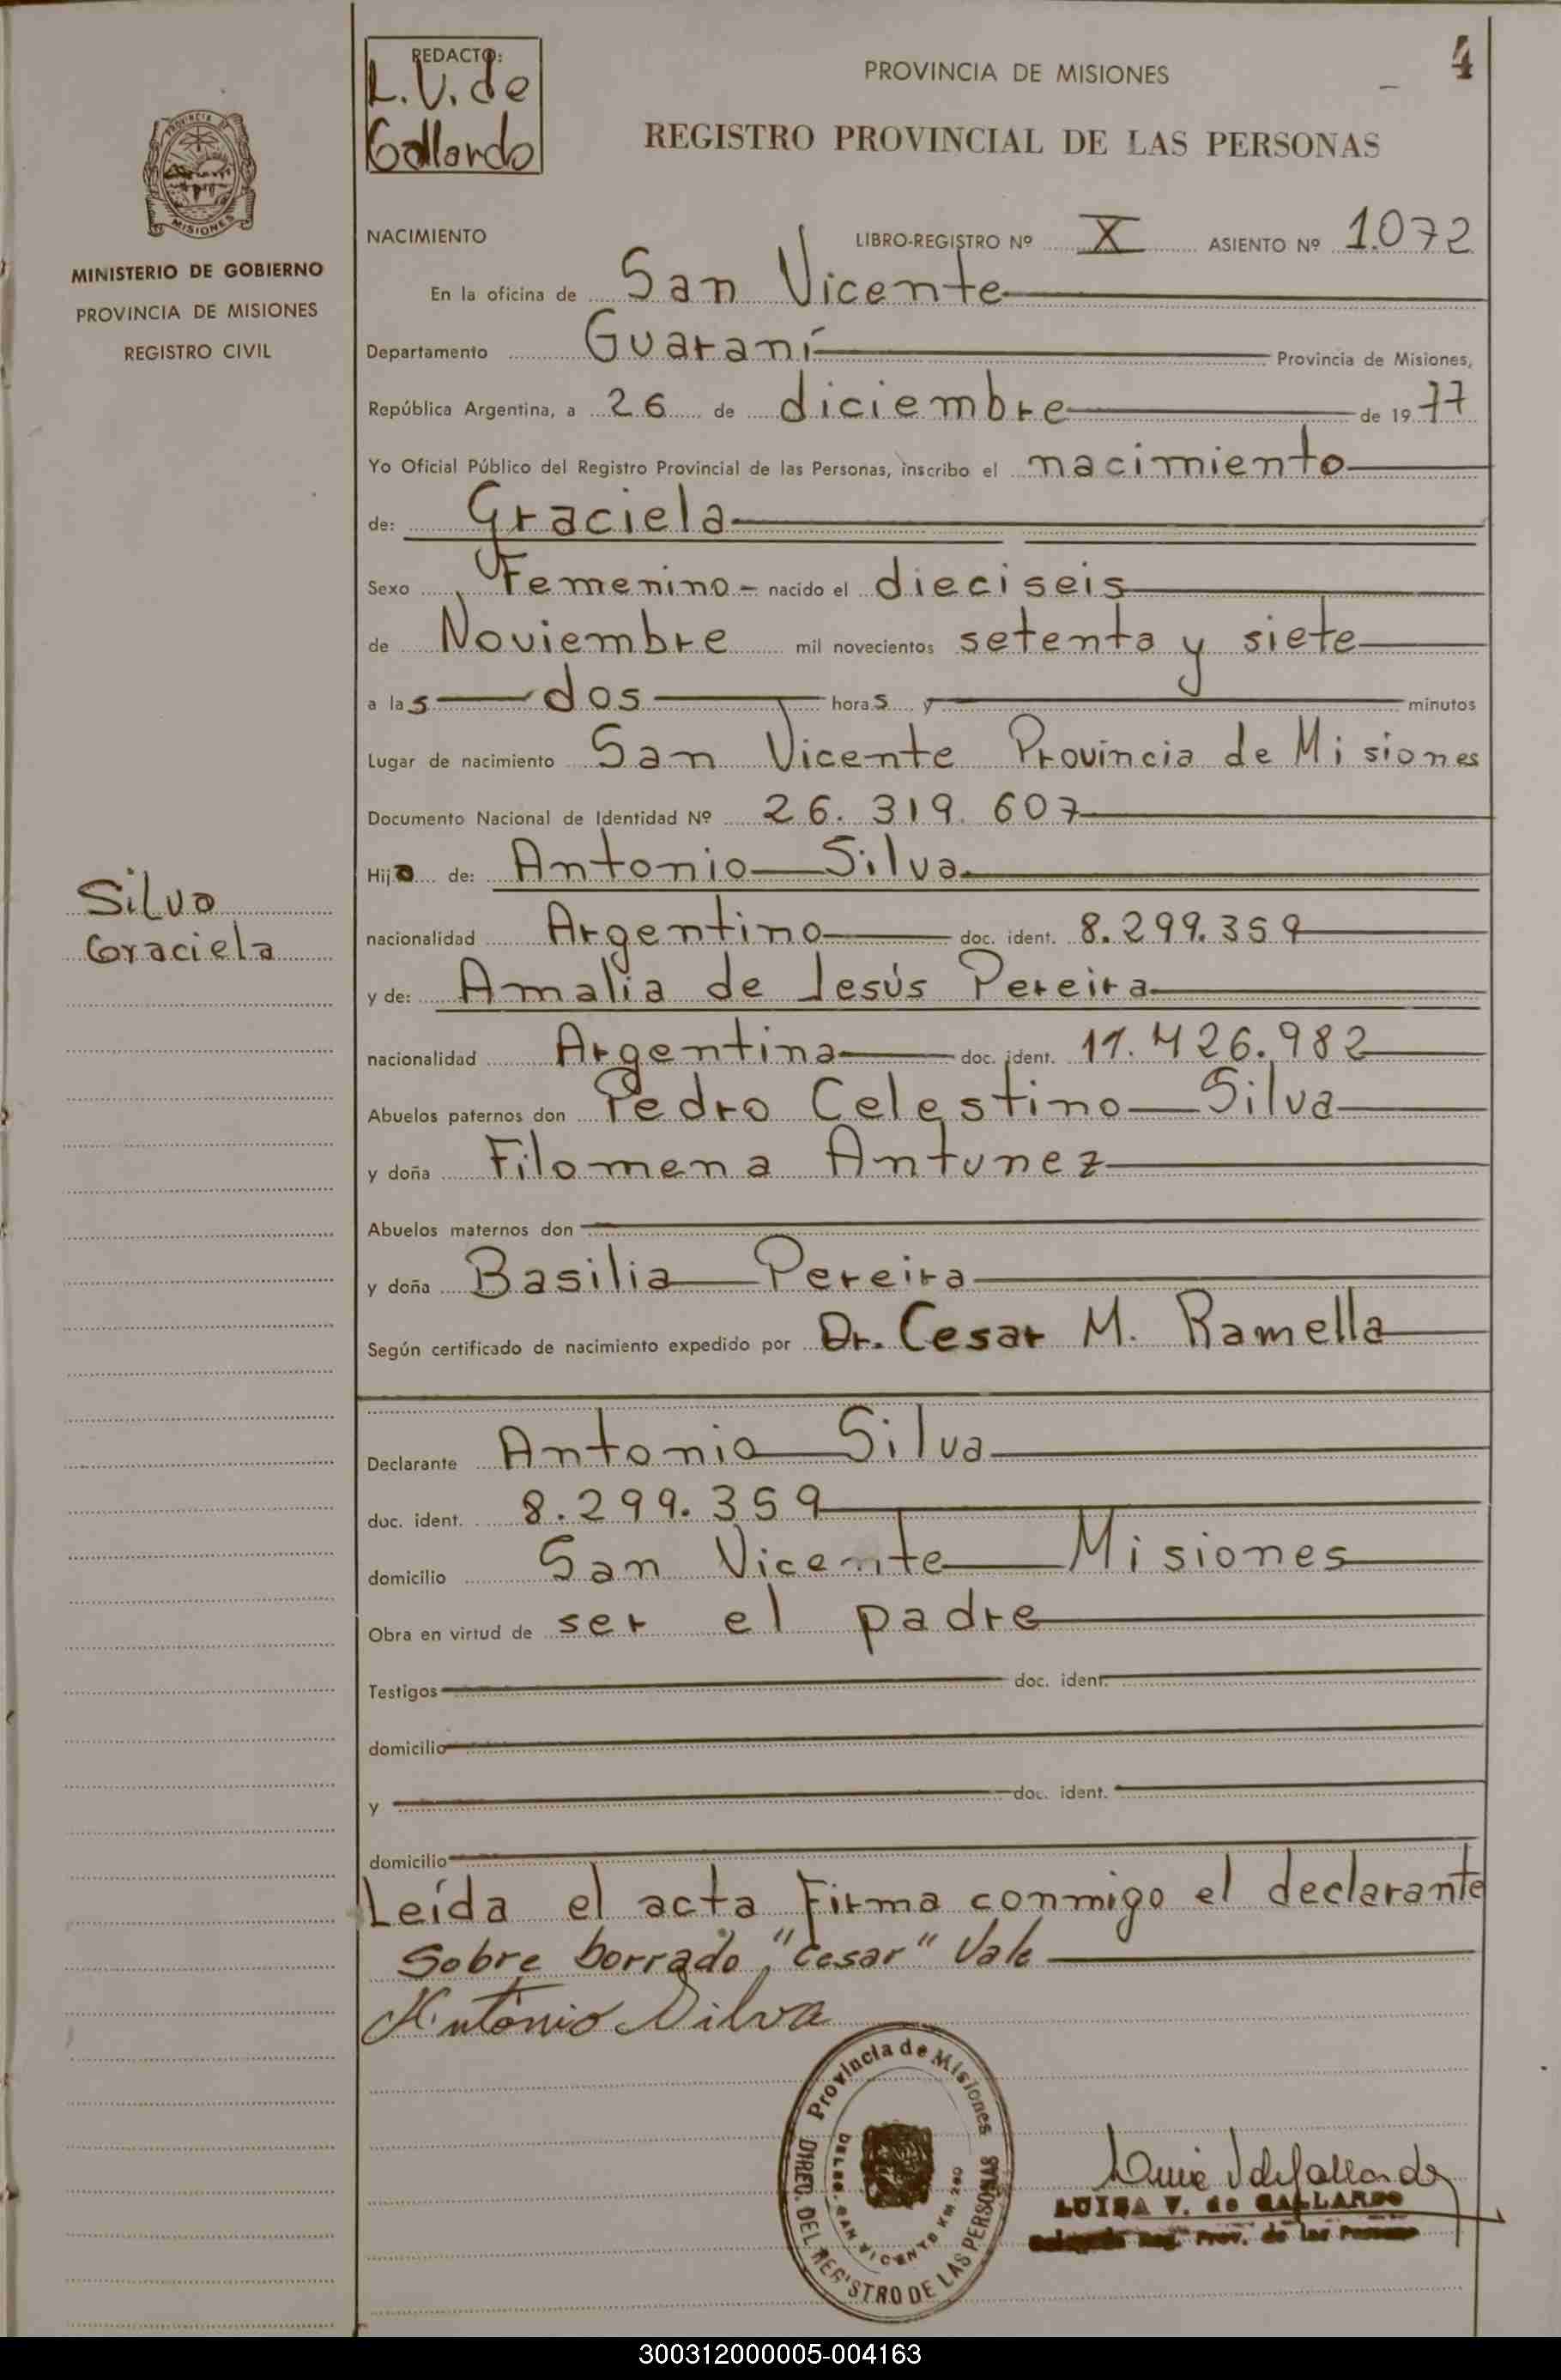 REDACTO:
L.V. de
Gallardo
PROVINCIA DE MISIONES
4
REGISTRO PROVINCIAL DE LAS PERSONAS
MISIONES
MINISTERIO DE GOBIERNO
PROVINCIA DE MISIONES
REGISTRO CIVIL
NACIMIENTO LIBRO-REGISTRO Nº X ASIENTO Nº 1.072
En la oficina de San Vicente
Departamento Guaraní Provincia de Misiones,
República Argentina, a 26 de diciembre de 1977
Yo Oficial Público del Registro Provincial de las Personas, inscribo el nacimiento
de: Graciela
Sexo Femenino nacido el dieciseis
de Noviembre mil novecientos setenta y siete
a las dos horas y minutos
Lugar de nacimiento San Vicente Provincia de Misiones
Documento Nacional de Identidad Nº 26.319.607
Hija de: Antonio Silva
Silva
Graciela
nacionalidad Argentino doc. ident. 8.299.359
y de: Amalia de Jesús Pereira
nacionalidad Argentina doc. ident. 11.426.982
Abuelos paternos don Pedro Celestino Silva
y doña Filomena Antunez
Abuelos maternos don
y doña Basilia Pereira
Según certificado de nacimiento expedido por Dr. Cesar M. Ramella
Declarante Antonio Silva
doc. ident. 8.299.359
domicilio San Vicente Misiones
Obra en virtud de ser el padre
Testigos doc. ident.
domicilio
y doc. ident.
domicilio
Leída el acta Firma conmigo el declarante
Sobre borrado "Cesar" Vale
Antonio Silva
Provincia de Misiones
DIREC. DEL REGISTRO DE LAS PERSONAS
DELEG. SAN VICENTE KM. 290
LUISA V. de GALLARDO
Reg. Prov. de las Personas
300312000005-004163